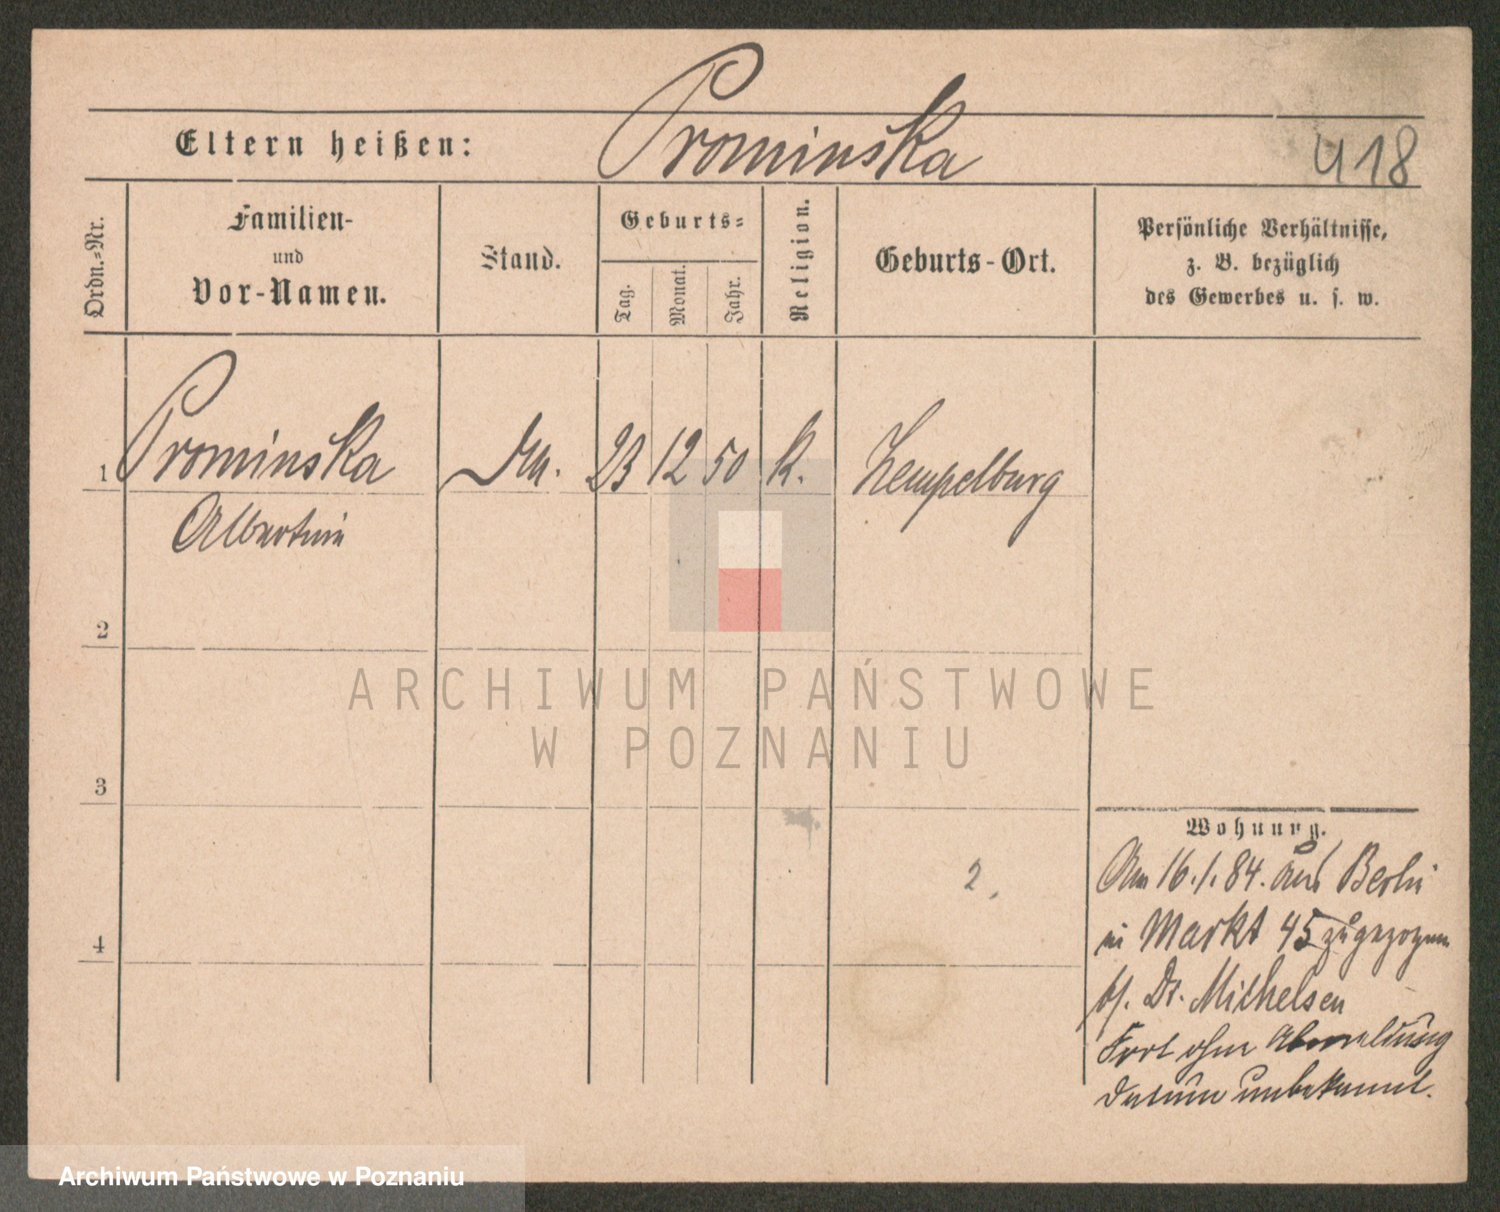 Prominska
Eltern heißen:
418
Ordn.-Nr.
Familien-
und
Vor-Namen.
Stand.
Geburts-
Tag.
Monat.
Jahr.
Religion.
Geburts-Ort.
Persönliche Verhältnisse,
z. B. bezüglich
des Gewerbes u. s. w.
1 Prominska 23 12 50 k. Zempelburg
Albertine
2
3
4
2.
Wohnung.
Am 16.1.84. aus Berlin
in Markt 45 zugezogen
b/. Dr. Michelsen
Fort ohne Abmeldung
Datum unbekannt.
ARCHIWUM PAŃSTWOWE
W POZNANIU
Archiwum Państwowe w Poznaniu